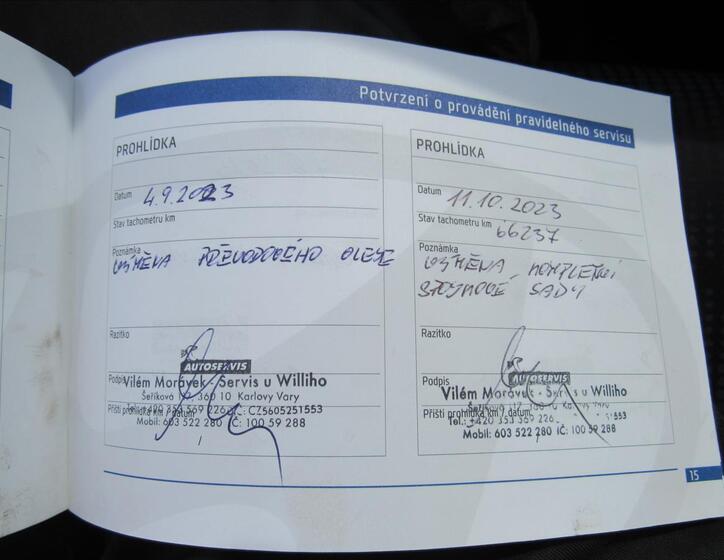 Potvrzení o provádění pravidelného servisu
PROHLÍDKA
Datum 4.9.2023
Stav tachometru km
Poznámka
VÝMĚNA PŘEVODOVÉHO OLEJE
Razítko
AUTOSERVIS
Podpis
Vilém Morávek - Servis u Williho
Šeříková 360 10 Karlovy Vary
Příští prohlídka km / datum
Tel.: +420 353 569 226 IČ: CZ5605251553
Mobil: 603 522 280 IČ: 100 59 288
PROHLÍDKA
Datum 11.10.2023
Stav tachometru km 66237
Poznámka
VÝMĚNA KOMPLETNÍ
SPOJKOVÉ SADY
Razítko
AUTOSERVIS
Podpis
Vilém Morávek - Servis u Williho
Příští prohlídka km / datum
Tel.: +420 353 569 226
Mobil: 603 522 280 IČ: 100 59 288
15